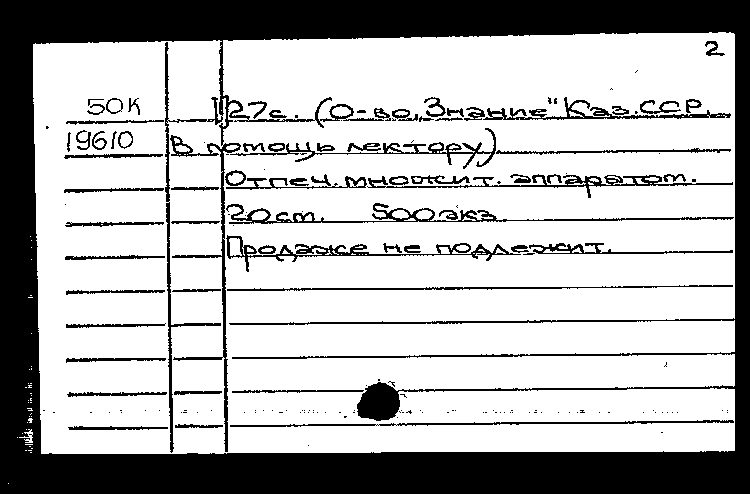 2
50К 27с. (О-во „Знание" Каз.ССР.
19610 В помощь лектору)
Отпеч. множит. аппаратом.
20 см. 500 экз.
Продаже не подлежит.